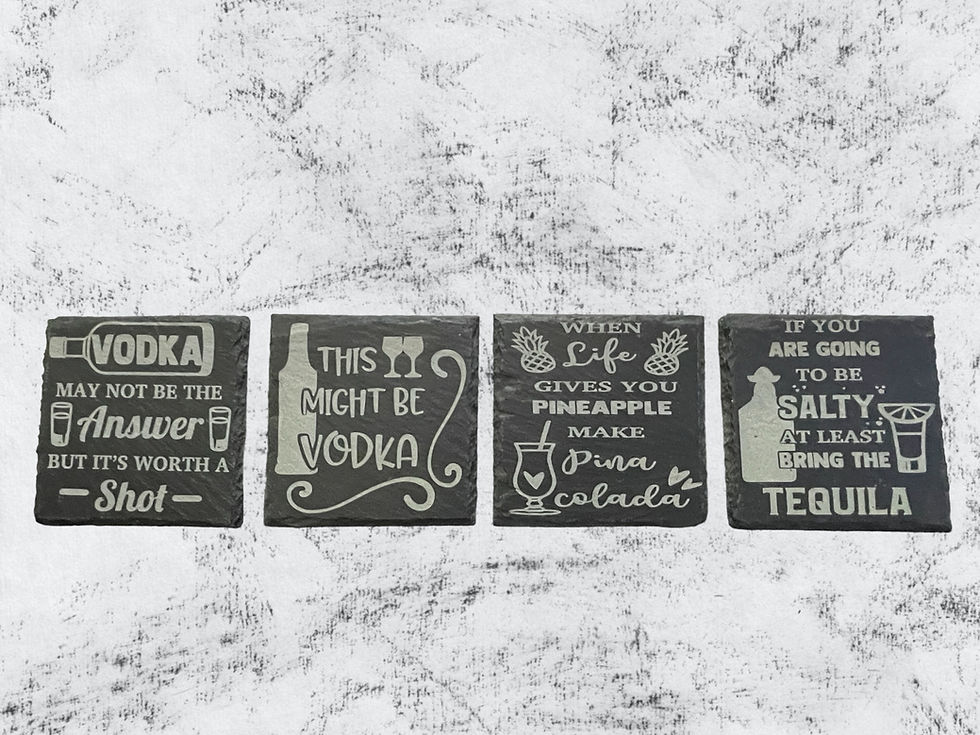 VODKA
MAY NOT BE THE
Answer
BUT IT'S WORTH A
Shot
THIS
MIGHT BE
VODKA
WHEN
Life
GIVES YOU
PINEAPPLE
MAKE
Pina
colada
IF YOU
ARE GOING
TO BE
SALTY
AT LEAST
BRING THE
TEQUILA